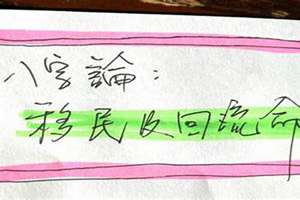 八字論：
移民及回流命